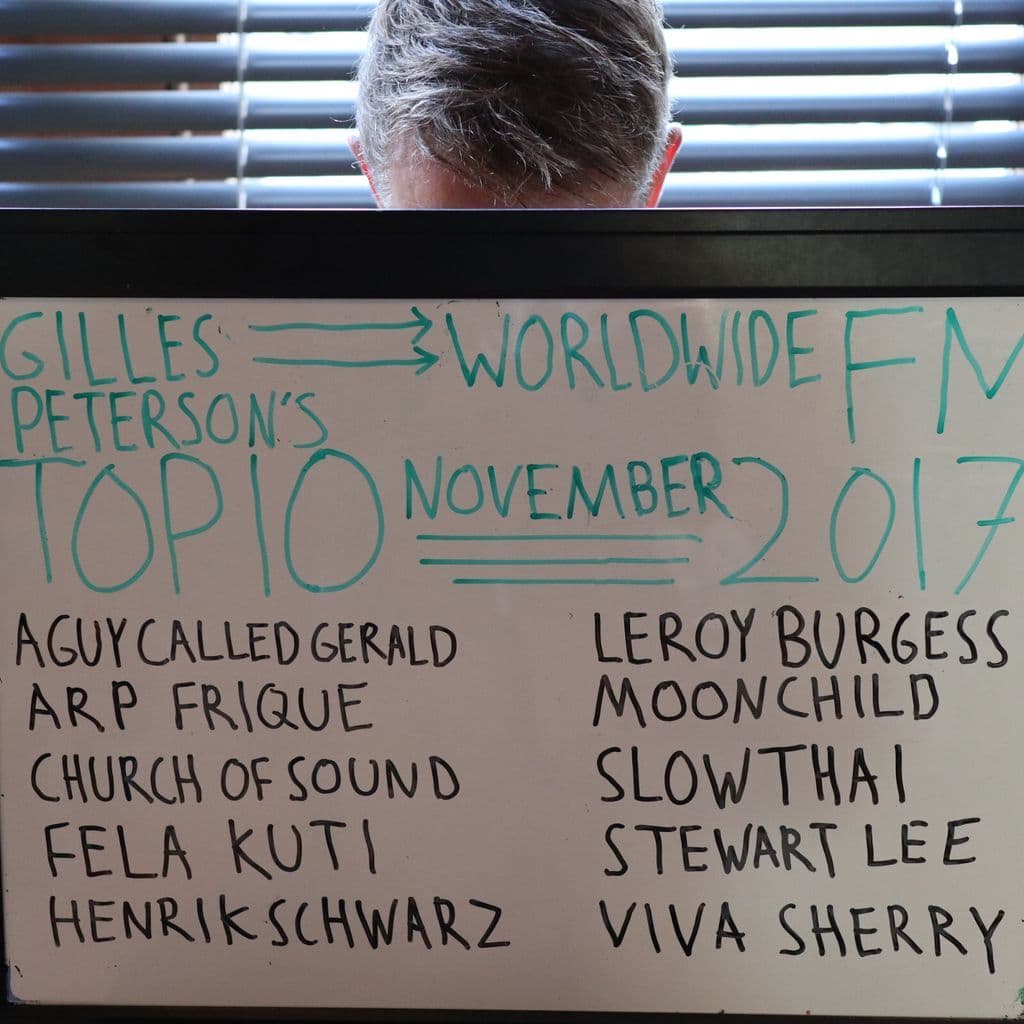 GILLES → WORLDWIDE FM
PETERSON'S
TOP 10 NOVEMBER 2017
A GUY CALLED GERALD
ARP FRIQUE
CHURCH OF SOUND
FELA KUTI
HENRIK SCHWARZ
LEROY BURGESS
MOONCHILD
SLOWTHAI
STEWART LEE
VIVA SHERRY